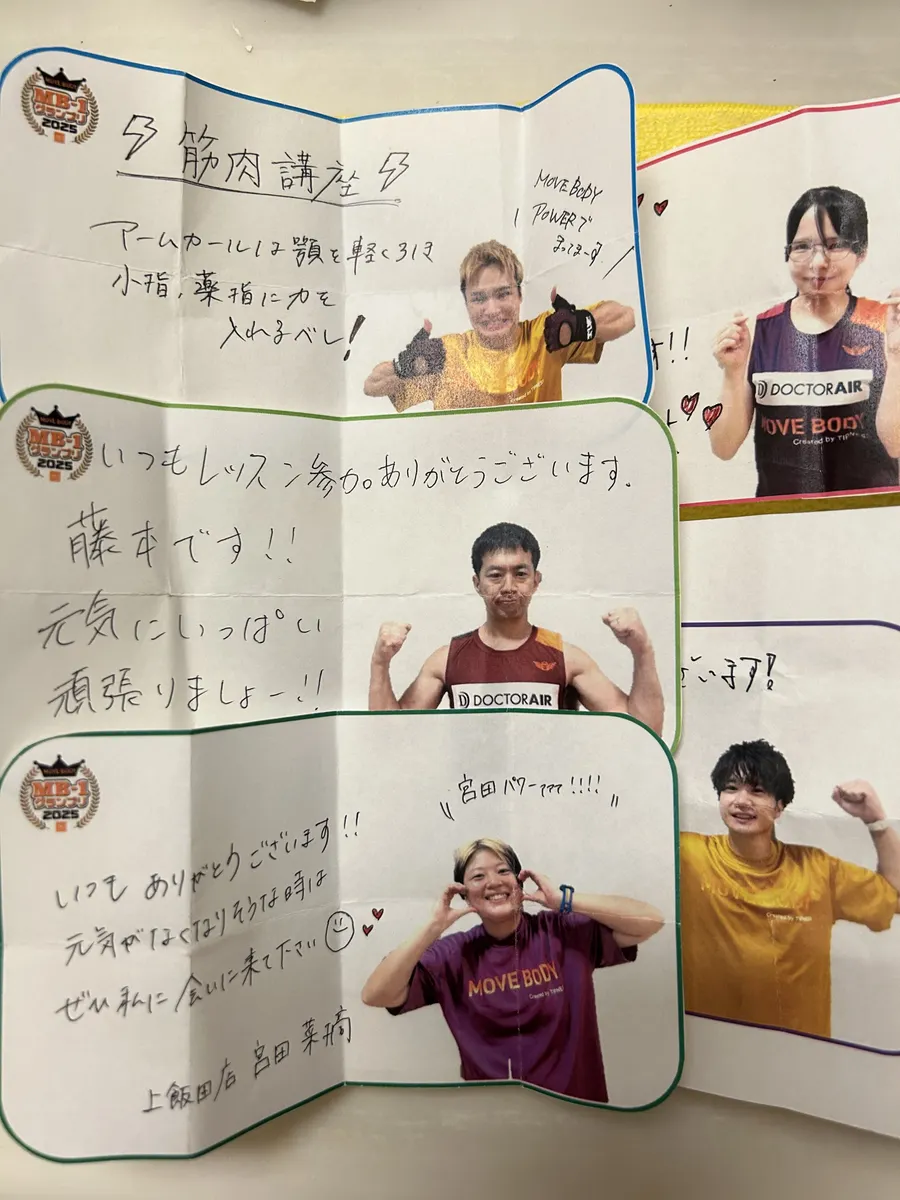 MOVE BODY
MB-1
グランプリ
2025
筋肉講座
アームカールは顎を軽くひき
小指、薬指に力を
入れるべし!
MOVE BODY
POWERで
まってまーす
す!!
DOCTORAIR
MOVE BODY
Created by TIPNESS
MOVE BODY
MB-1
グランプリ
2025
いつもレッスン参加。ありがとうございます。
藤本です!!
元気にいっぱい
頑張りましょー!!
DOCTORAIR
ございます!
Created by TIPNESS
MOVE BODY
MB-1
グランプリ
2025
宮田パワーァァァ!!!!
いつも ありがとうございます!!
元気がなくなりそうな時は
ぜひ私に会いに来て下さい
上飯田店 宮田 菜摘
MOVE BODY
Created by TIPNESS